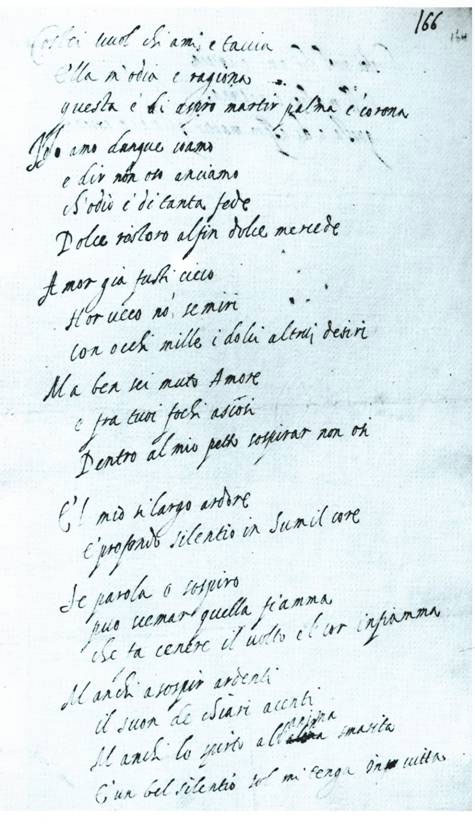 166
Costei vuol ch'i ami e taccia
Ella m'odia e ragiona
questa è di aspro martir palma e corona
Io amo dunque io amo
e dir non oso anciamo
ch'odio è di tanta fede
Dolce ristoro al fin dolce mercede
Amor già fusti cieco
Hor cieco nò, se miri
con occhi mille i dolci altrui desiri
Ma ben sei muto Amore
e fra tuoi fochi ascosi
Dentro al mio petto sospirar non osi
E'l mio si largo ardore
E' profondo silentio in Sumil core
Se parola o sospiro
può scemar quella fiamma
che fa cenere il volto e'l cor infiamma
Manchi a sospir ardenti
il suon de chiari accenti
Manchi lo spirto all' smarita
E'un bel silentio sol mi tenga in vitta